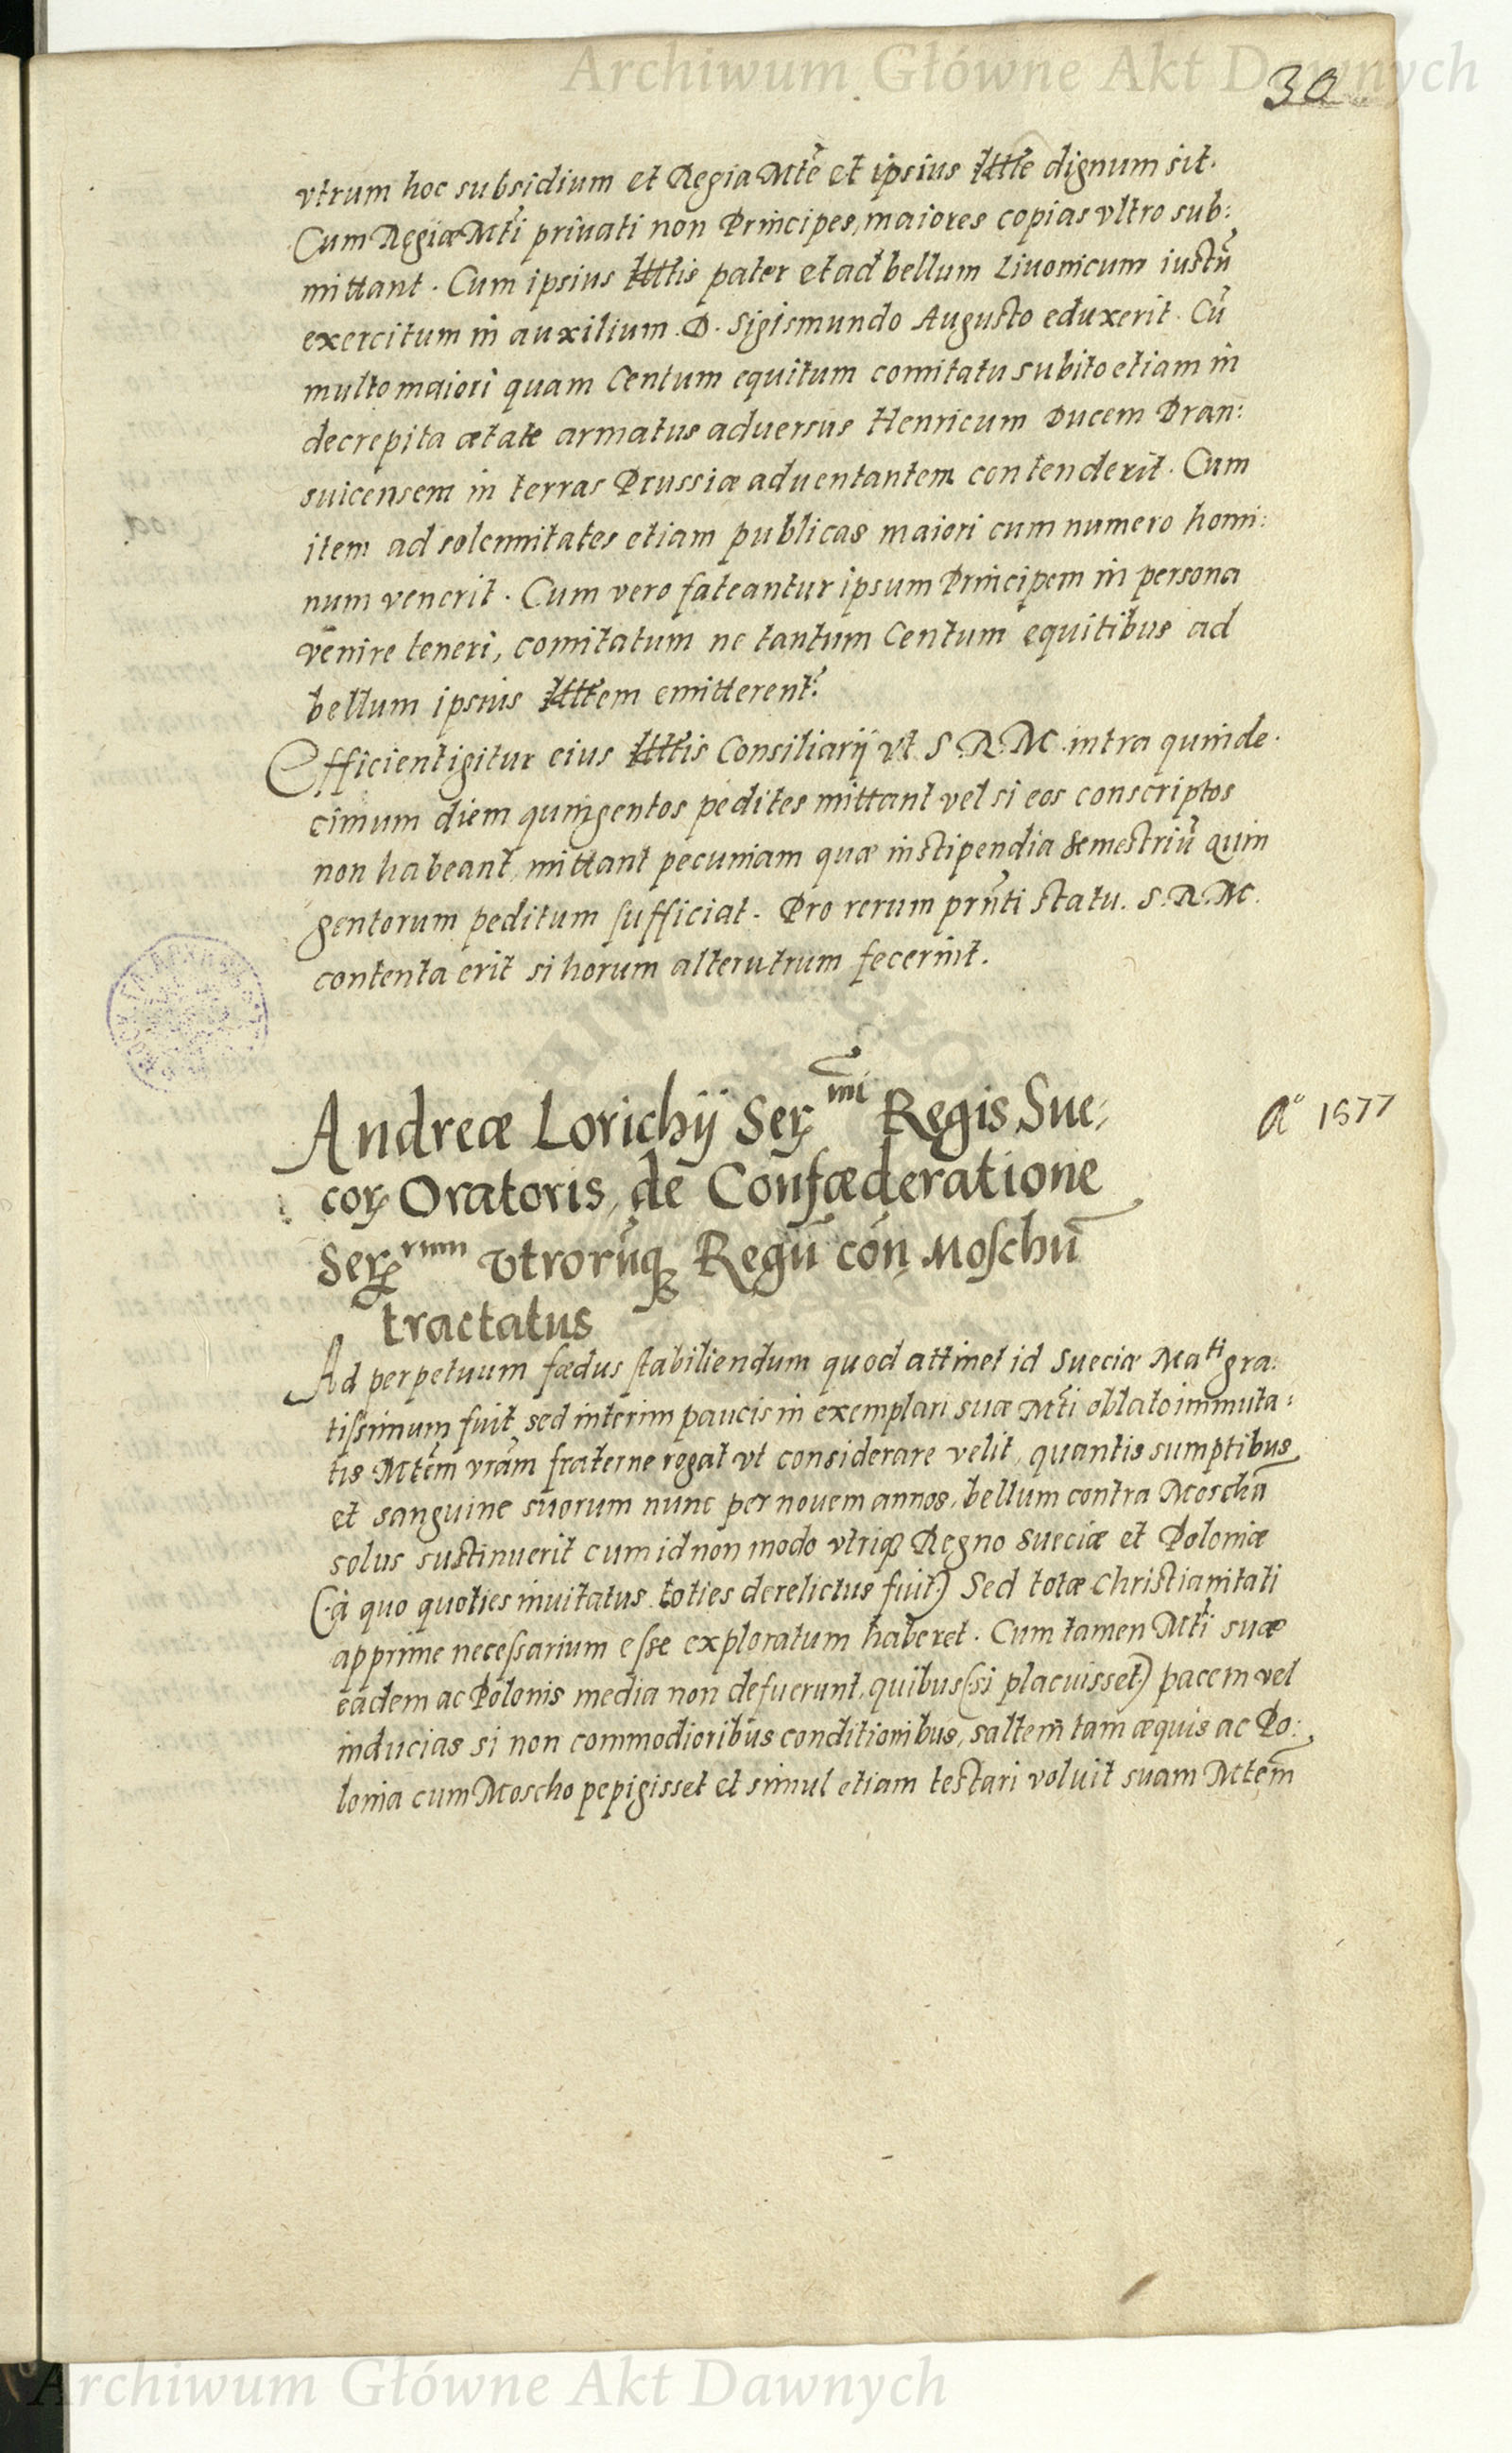 Archiwum Główne Akt Dawnych
30
vtrum hoc subsidium et Regia Mte et ipsius Illtte dignum sit.
Cum Regiæ Mti priuati non Principes, maiores copias vltro sub:
mittant. Cum ipsius Illttis pater et ad bellum Liuonicum iustū
exercitum in auxilium D. Sigismundo Augusto eduxerit. Cū
multo maiori quam Centum equitum comitatu subito etiam in
decrepita ætate armatus aduersus Henricum Ducem Bran:
suicensem in terras Prussiæ aduentantem contenderit. Cum
item ad solennitates etiam publicas maiori cum numero homi:
num venerit. Cum vero fateantur ipsum Principem in persona
venire teneri, comitatum ne tantum Centum equitibus ad
bellum ipsius Illttem emitterent?
Efficient igitur eius Illttis Consiliarij vt S.R.M. intra quinde:
cimum diem quingentos pedites mittant vel si eos conscriptos
non habeant, mittant pecuniam quæ in stipendia semestriū quin
gentorum peditum sufficiat. Pro rerum prñti statu. S.R.M.
contenta erit si horum alterutrum fecerint.
Andreæ Lorichij Ser mi Regis Sue:
cor Oratoris, de Confæderatione
Ser rum vtrorūq Regū con Moschū
tractatus
Aº 1577
Ad perpetuum fædus stabiliendum quod attinet id Sueciæ Ma ti gra:
tissimum fuit, sed interim paucis in exemplari suæ Mti oblato immuta:
tis Mtēm vrām fraterne rogat vt considerare velit, quantis sumptibus
et sanguine suorum nunc per nouem annos, bellum contra Moschū
solus sustinuerit cum id non modo vtriq Regno Sueciæ et Poloniæ
(à quo quoties inuitatus toties derelictus fuit) Sed totæ Christianitati
apprime necessarium esse exploratum haberet. Cum tamen Mti suæ
eædem ac Polonis media non defuerunt, quibus (si placuisset) pacem vel
inducias si non commodioribus conditionibus, saltem tam æquis ac Po:
lonia cum Moscho pepigisset et simul etiam testari voluit suam Mtem
Archiwum Główne Akt Dawnych